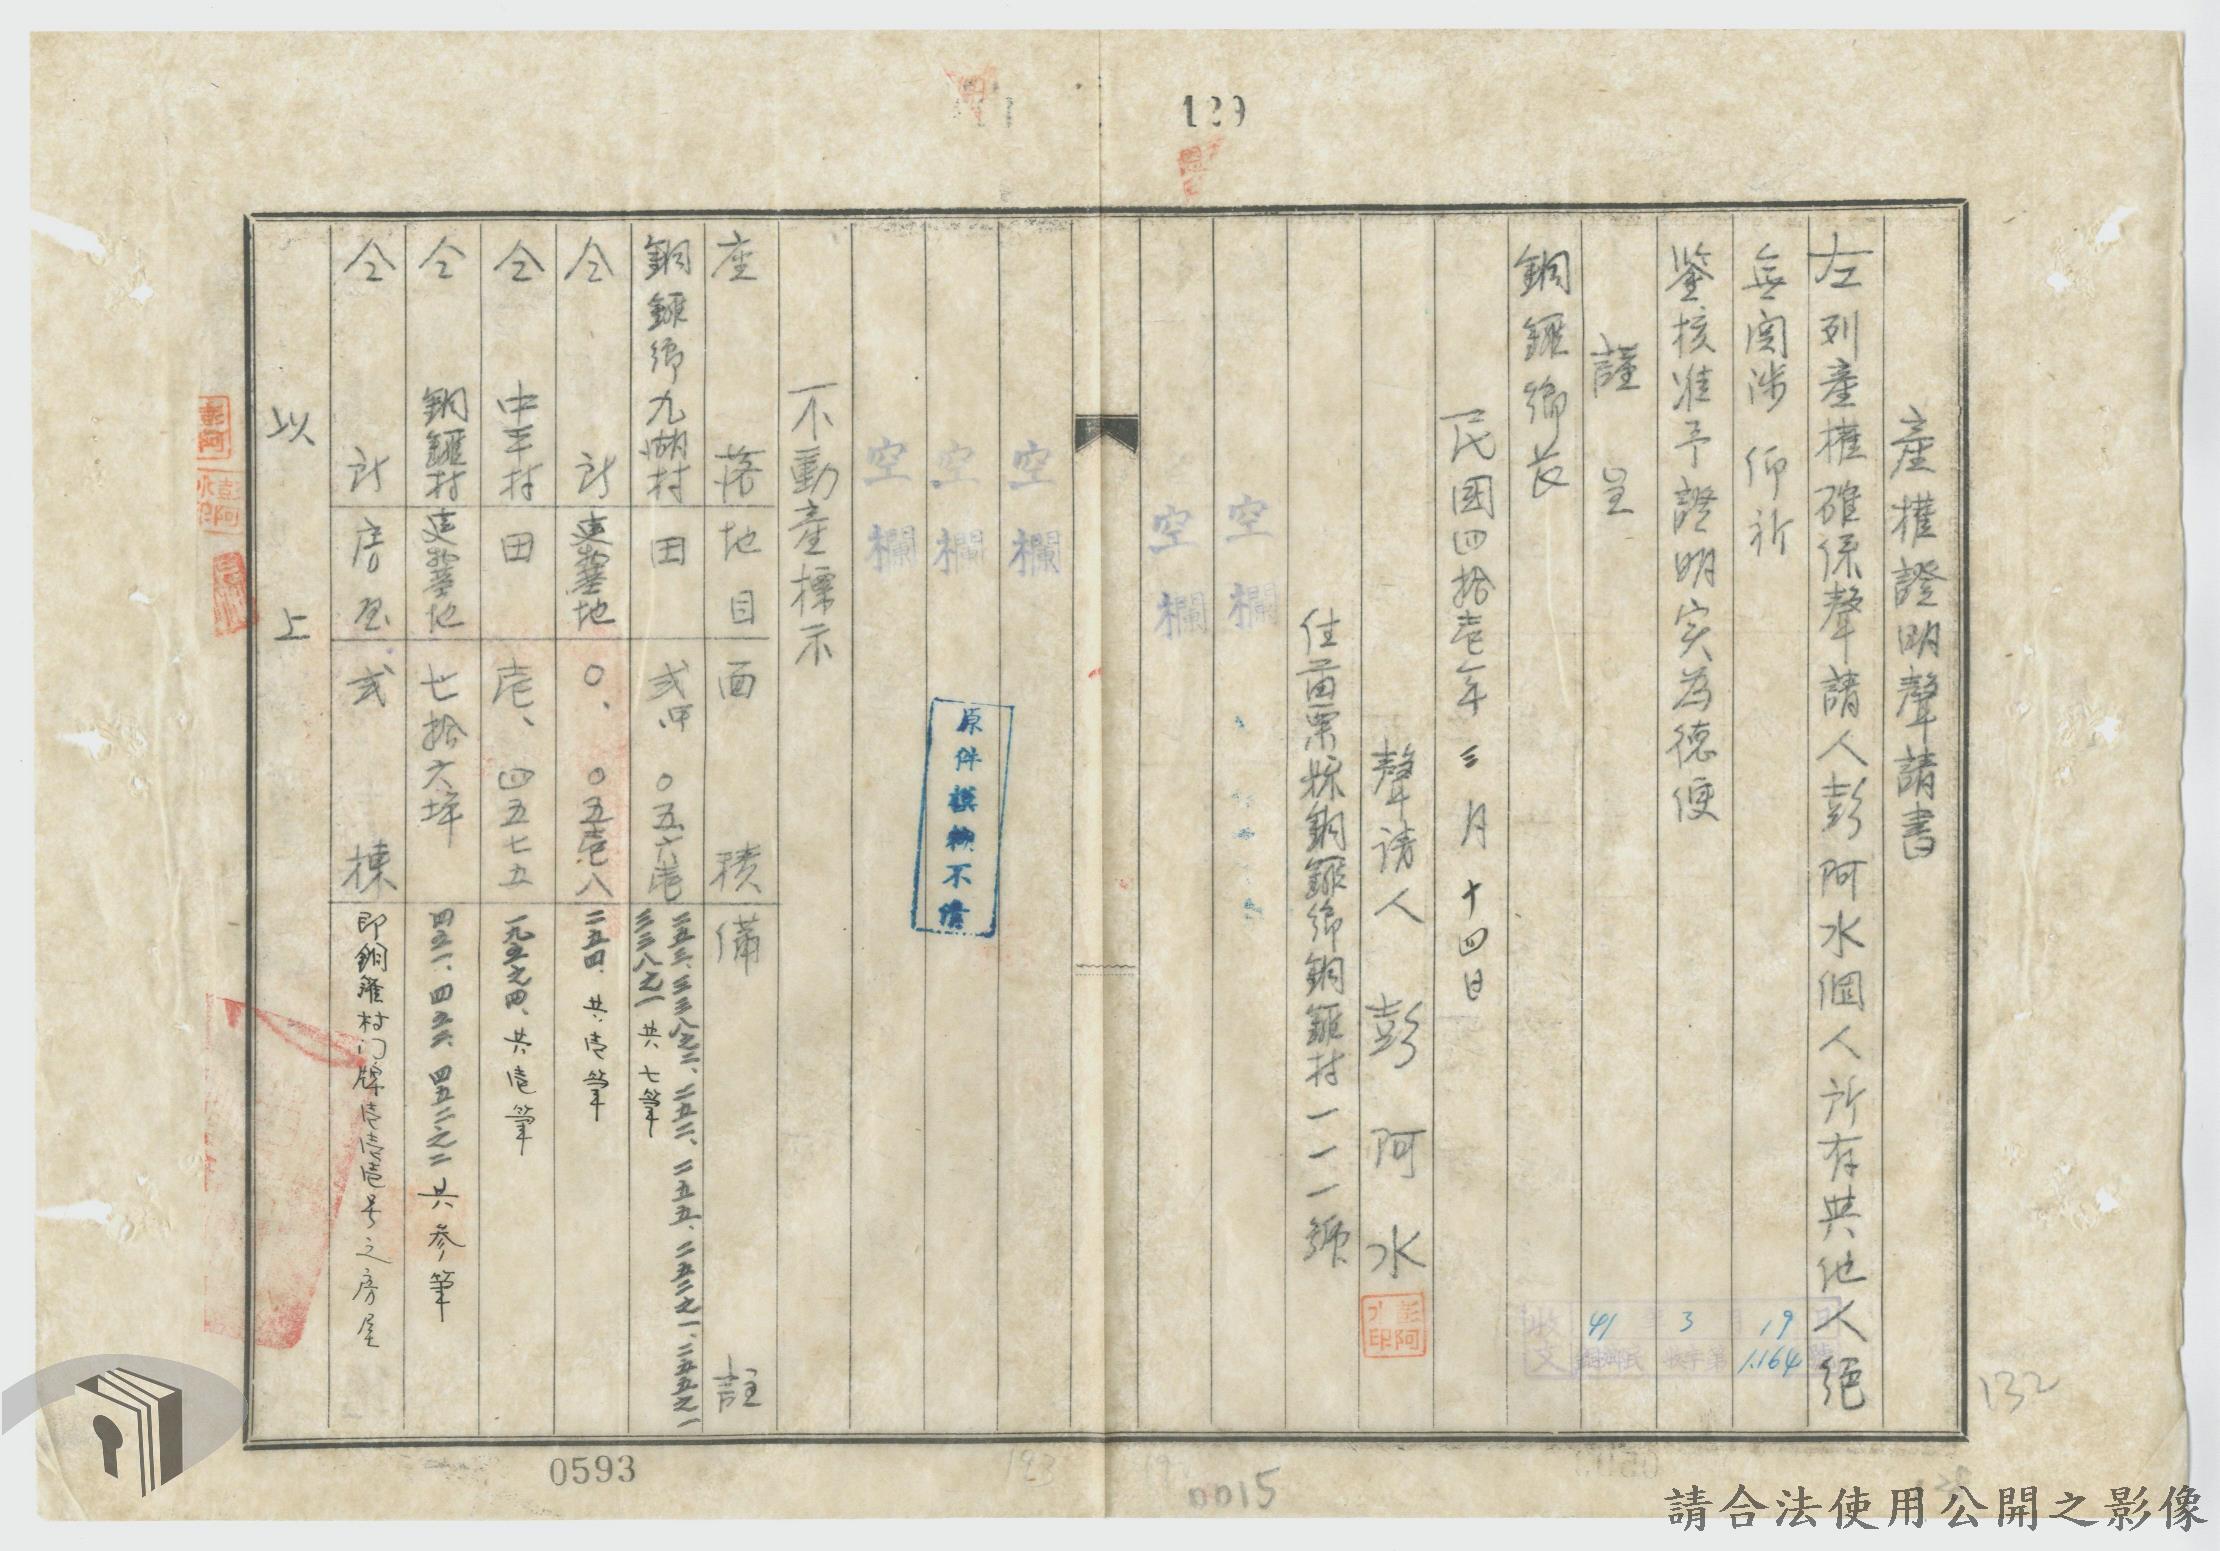 產權證明聲請書
左列產權確係聲請人彭阿水個人所有與他人絕
無関涉 仰祈
鑒核准予證明実為德便
謹 呈
銅鑼鄉長
民國四拾壱年三月十四日
聲請人 彭阿水
彭阿水印
住苗栗縣銅鑼鄉銅鑼村一一一號
空欄
空欄
空欄
空欄
空欄
原件模糊不清
不動產標示
座落 地目 面積 備註
銅鑼鄉九湖村 田 弍甲 0五六壱 二五三、三三八之二、二五二、二五五、二五二之一、二五五之一
三三八之一 共七筆
仝 所 建築基地 0、0五壱八 二五四、共壱筆
仝 中平村 田 壱、四五七五 一九五之四、共壱筆
仝 銅鑼村 建築基地 七拾六坪 四五一、四五六、四五二之二 共参筆
仝 所 房屋 弍棟 即銅鑼村门牌壱壱壱号之房屋
以上
收文 41 3 19
1164
129
132
0593
0015
請合法使用公開之影像